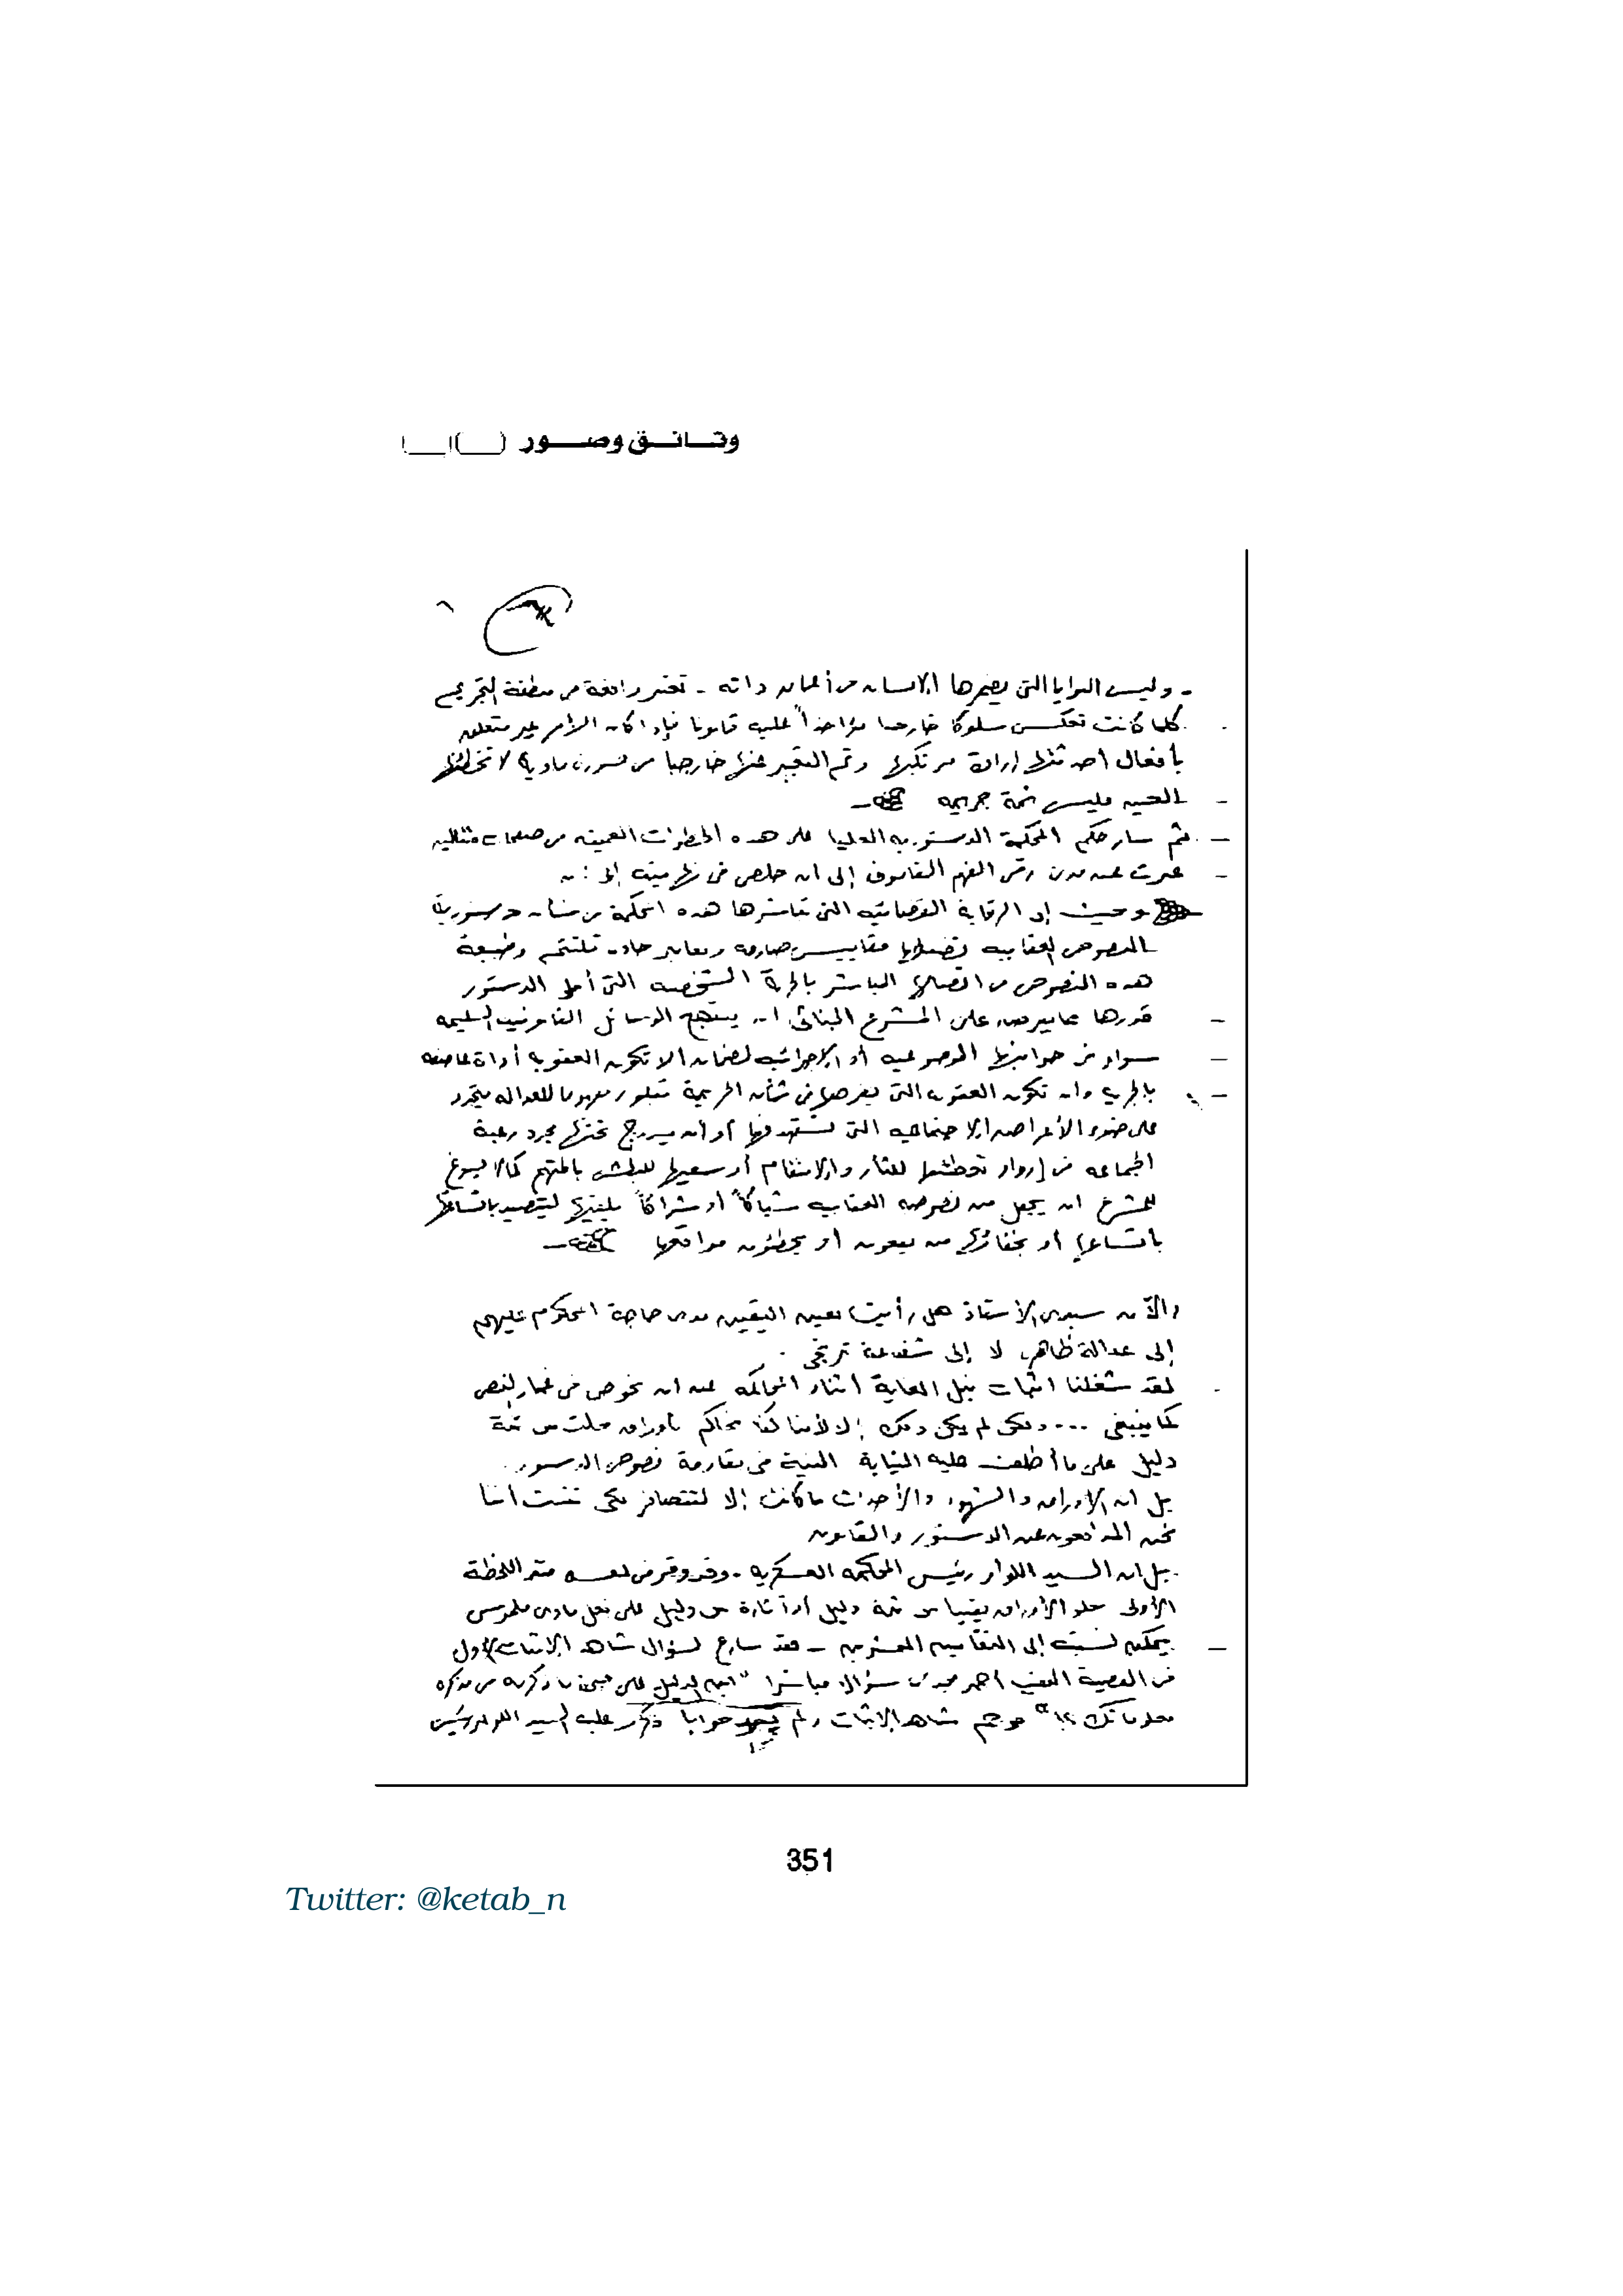 وثـــائـــق وصـــــور
- وليس النوايا التى يضمرها الإنسان من أعماق ذاته - تعتبر واقعة من منطقة التجريم
كلما كانت تعكس سلوكا خارجيا مؤاخذاً عليه قانونا فإذا كان الأمر غير متعلق
بأفعال أحدثتها إرادة مرتكبها وتم التعبير عنها خارجيا من صورة مادية لا تخطئها
العين فليس ثمة جريمة
ثم سار حكم المحكمة الدستورية العليا على هذه الخطوات العميقة من صفحات متتالية
عبرت عن مدى رقى الفهم القانونى إلى ان خلص فى نهايته إلى :-
وحيث إن الرقابة القضائية التى تباشرها هذه المحكمة من شأن دستورية
النصوص العقابية تضبطها مقاييس صارمة ومعايير حادة تلتئم وطبيعة
هذه النصوص من اتصالها المباشر بالحرية الشخصية التى أعلى الدستور
قدرها مما يفرض على المشرع الجنائى ان ينتهج الوسائل القانونية السليمة
سواء من جوانبها الموضوعية أو الإجرائية لضمان ألا تكون العقوبة أداة عاصفة
بالحرية وان تكون العقوبة التى يفرضها فى شأن الجريمة تبلور مفهوما للعدالة يتحدد
على ضوء الأغراض الاجتماعية التى تستهدفها أو أن يندرج تحتها مجرد رغبة
الجماعة فى إرواء تعطشها للثأر والانتقام أو سعيها للبطش بالمتهم كما لا يسوغ
للمشرع ان يجعل من نصوصه العقابية شباكاً أو شراكاً يلقيها ليتصيد باتساعها
باتساعها أو بخفائها من يقعون أو يخطئون مواقعها
والآن سيدى الأستاذ هل رأيت بعين اليقين مدى حاجة المحكوم عليهم
إلى عدالة ظاهرة لا إلى شفاعة ترتجى .
لقد شغلنا اثبات نبل الغاية أثناء المحاكمة عن ان نخوض فى غمار النص
كما ينبغى ... ولكن لم يكن ذلك إلا لأننا كنا نحاكم بأوراق خلت من ثمة
دليل على ما أطلقت عليه النيابة النية فى مقارمة نصوص الدستور .
بل ان الأوراق والشهود والأحداث ما كانت إلا لتتضافر لكى تثبت أننا
نحن المدافعون عن الدستور والقانون
بل ان السيد اللواء رئيس المحكمة العسكرية - وقد وقر فى نفسه منذ اللحظة
الأولى خلو الأوراق يقينا من ثمة دليل أو أثارة من دليل على فعل مادى ملموس
يمكن نسبته إلى النقابيين المحترمين - فقد سارع لسؤال شاهد الإثبات الأول
فى القضية النقيب احمد مجدى سؤالا مباشرا " أين الدليل على صحة ما ذكرته من مذكرة
معلوماتك ؟! " فوجم شاهد الإثبات ولم يجد جوابا فكرر عليه السيد اللواء رئيس
351
Twitter: @ketab_n